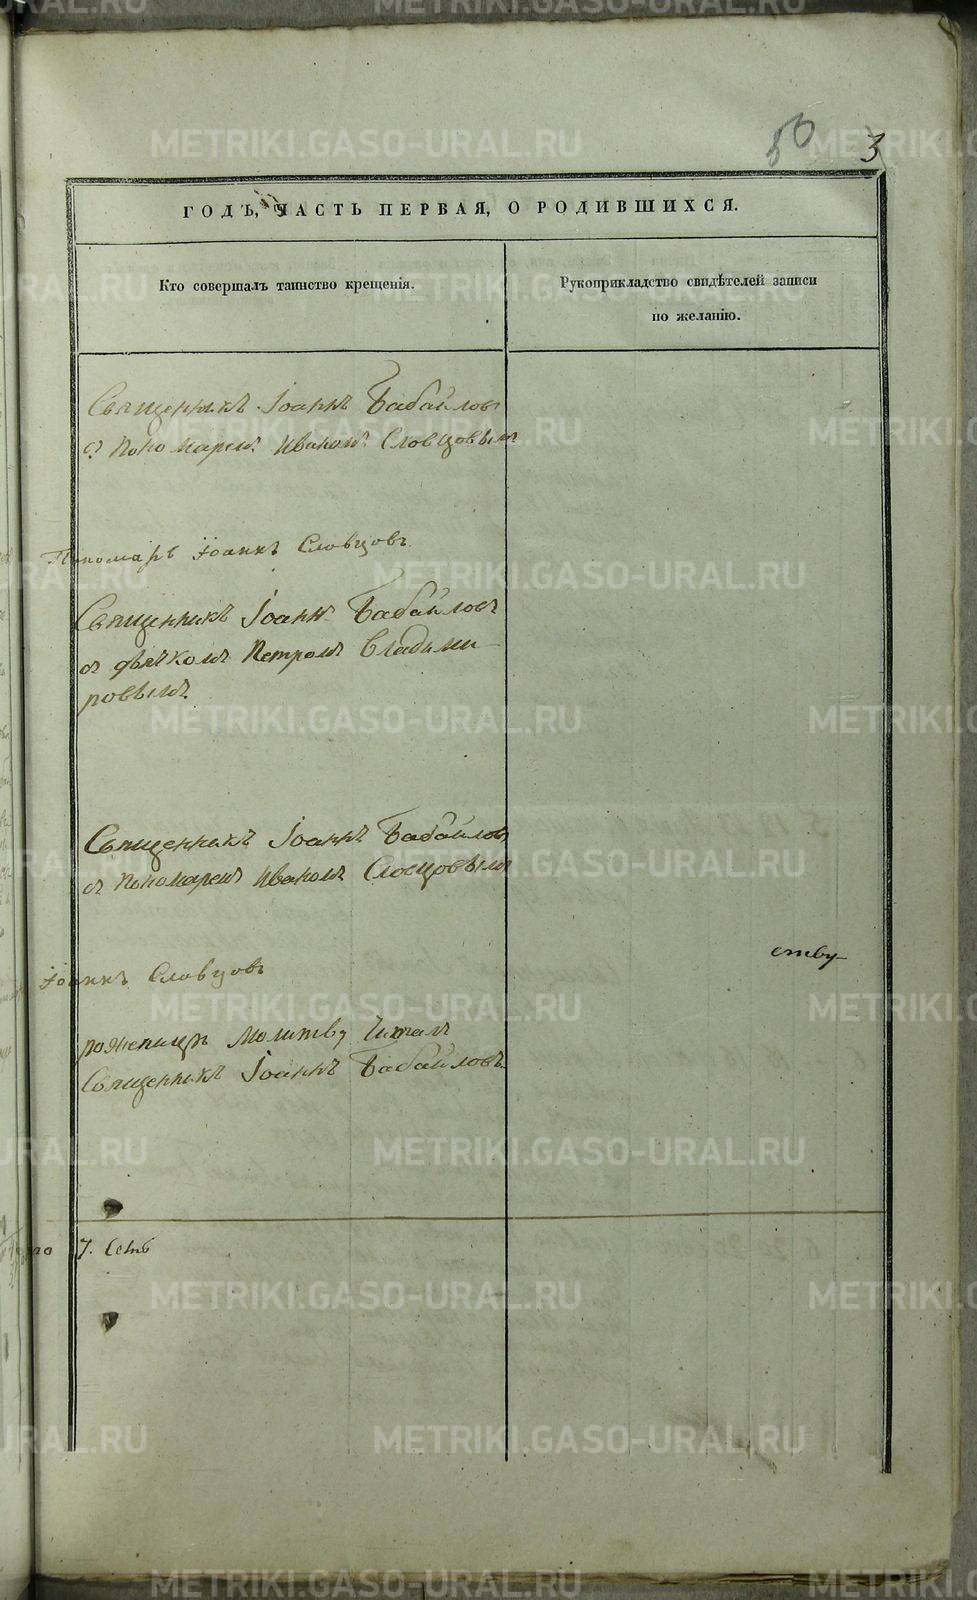 METRIKI.GASO-URAL.RU
50 3
ГОДЪ, ЧАСТЬ ПЕРВАЯ, О РОДИВШИХСЯ.
Кто совершалъ таинство крещенія.
Рукоприкладство свидѣтелей записи
по желанію.
Священникъ Іоаннъ Бабайловъ
съ Пономаремъ Иваномъ Словцовымъ
Пономарь Іоаннъ Словцовъ
Священникъ Іоаннъ Бабайловъ
съ дьячкомъ Петромъ Влади́ми-
ровымъ
Священникъ Іоаннъ Бабайловъ
съ Пономаремъ Иваномъ Словцовымъ
ству
Іоаннъ Словцовъ
Молитву читалъ
Священникъ Іоаннъ Бабайловъ
7. Семь